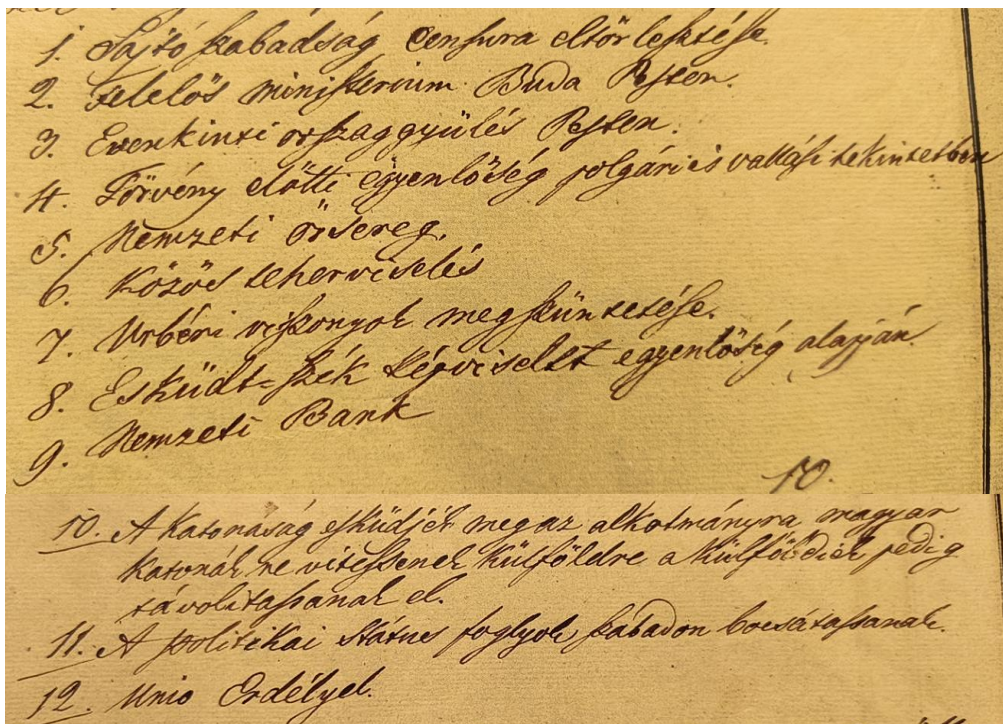 1. Sajtó szabadság Censura eltörlesztése.
2. Felelős ministerium Buda Pesten.
3. Evenkinti országgyülés Pesten.
4. Törvény előtti egyenlőség polgári és vallási tekintetben
5. Nemzeti örsereg.
6. Közös teherviselés
7. Urbéri viszonyok megszüntetése.
8. Esküdt=szék képviselet egyenlőség alapján.
9. Nemzeti Bank
10.
10. A katonaság esküdjék meg az alkotmányra magyar
katonák ne vitessenek külföldre a külföldiek pedig
távolitassanak el.
11. A politikai státus foglyok szabadon bocsátassanak.
12. Unio Erdélyel.